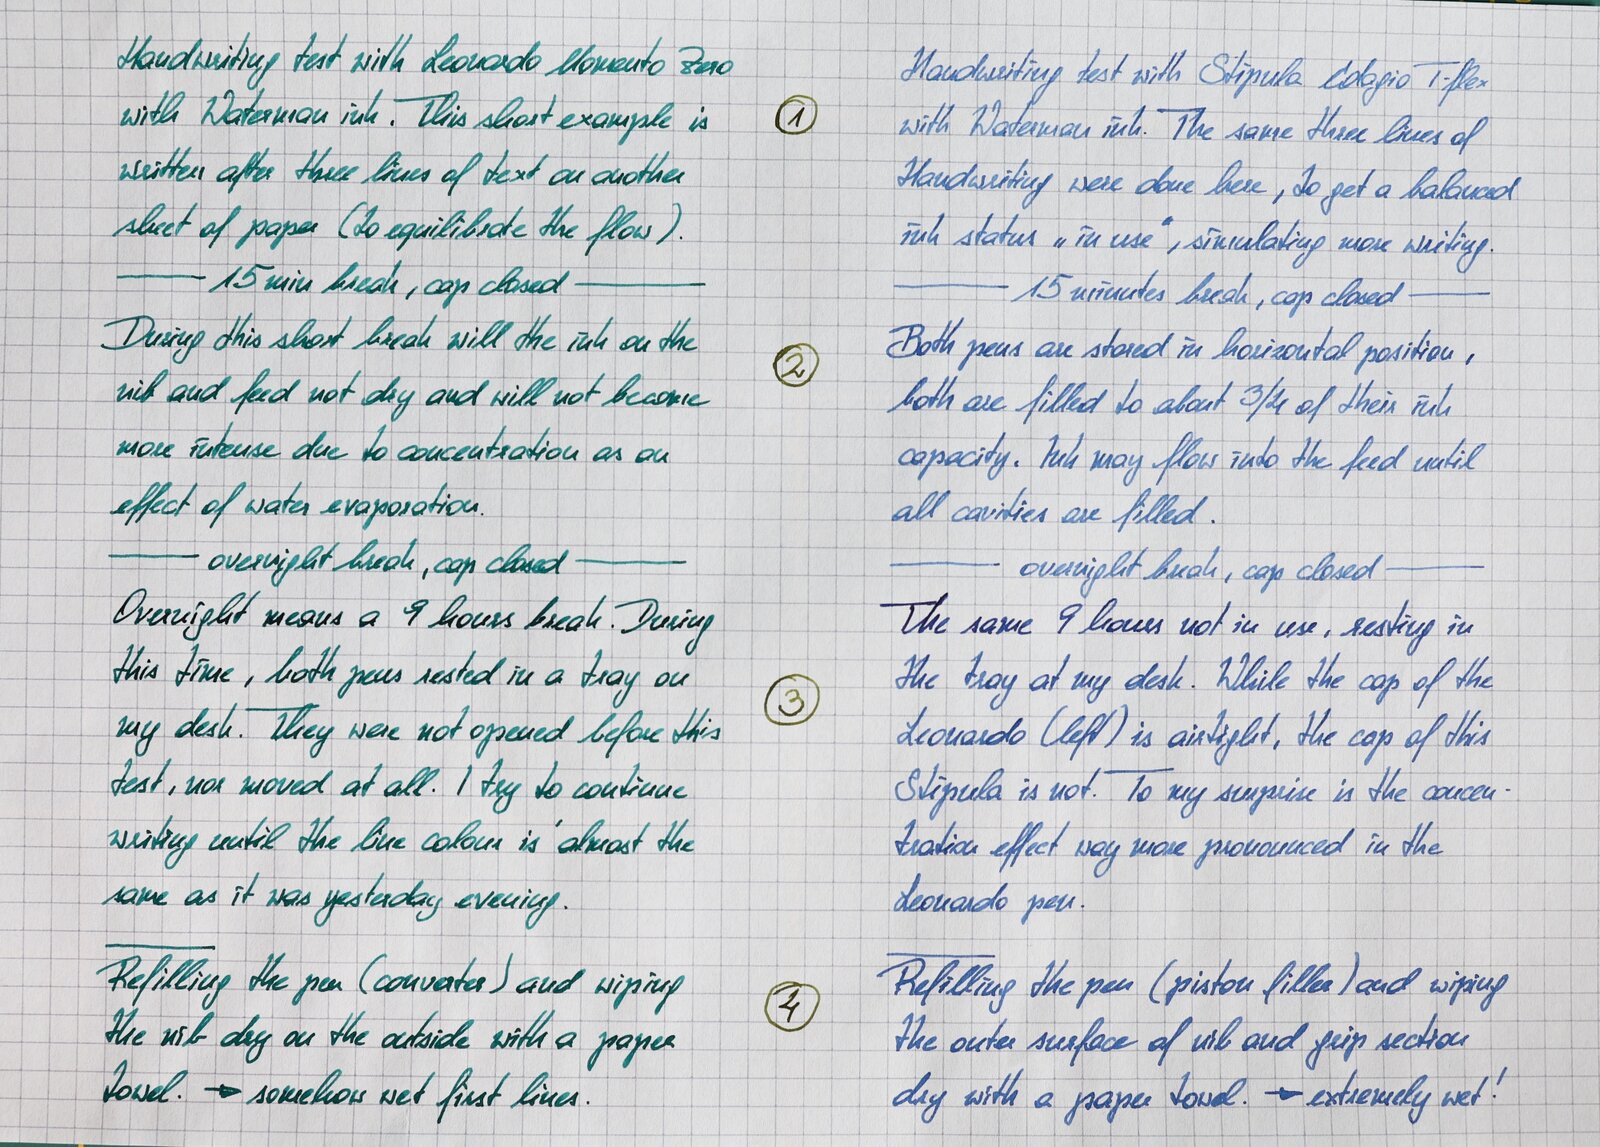 Handwriting test with Leonardo Momento Zero
with Waterman ink. This short example is
written after three lines of text on another
sheet of paper (to equilibrate the flow).
15 min break, cap closed
During this short break will the ink on the
nib and feed not dry and will not become
more intense due to concentration as an
effect of water evaporation.
overnight break, cap closed
Overnight means a 9 hours break. During
this time, both pens rested in a tray on
my desk. They were not opened before this
test, nor moved at all. I try to continue
writing until the line colour is almost the
same as it was yesterday evening.
Refilling the pen (converter) and wiping
the nib dry on the outside with a paper
towel. → somehow wet first lines.
1
2
3
4
Handwriting test with Stipula Adagio T-flex
with Waterman ink. The same three lines of
Handwriting were done here, to get a balanced
ink status „in use“, simulating more writing.
15 minutes break, cap closed
Both pens are stored in horizontal position,
both are filled to about 3/4 of their ink
capacity. Ink may flow into the feed until
all cavities are filled.
overnight break, cap closed
The same 9 hours not in use, resting in
the tray at my desk. While the cap of the
Leonardo (left) is airtight, the cap of this
Stipula is not. To my surprise is the concen-
tration effect way more pronounced in the
Leonardo pen.
Refilling the pen (piston filler) and wiping
the outer surface of nib and grip section
dry with a paper towel. → extremely wet!